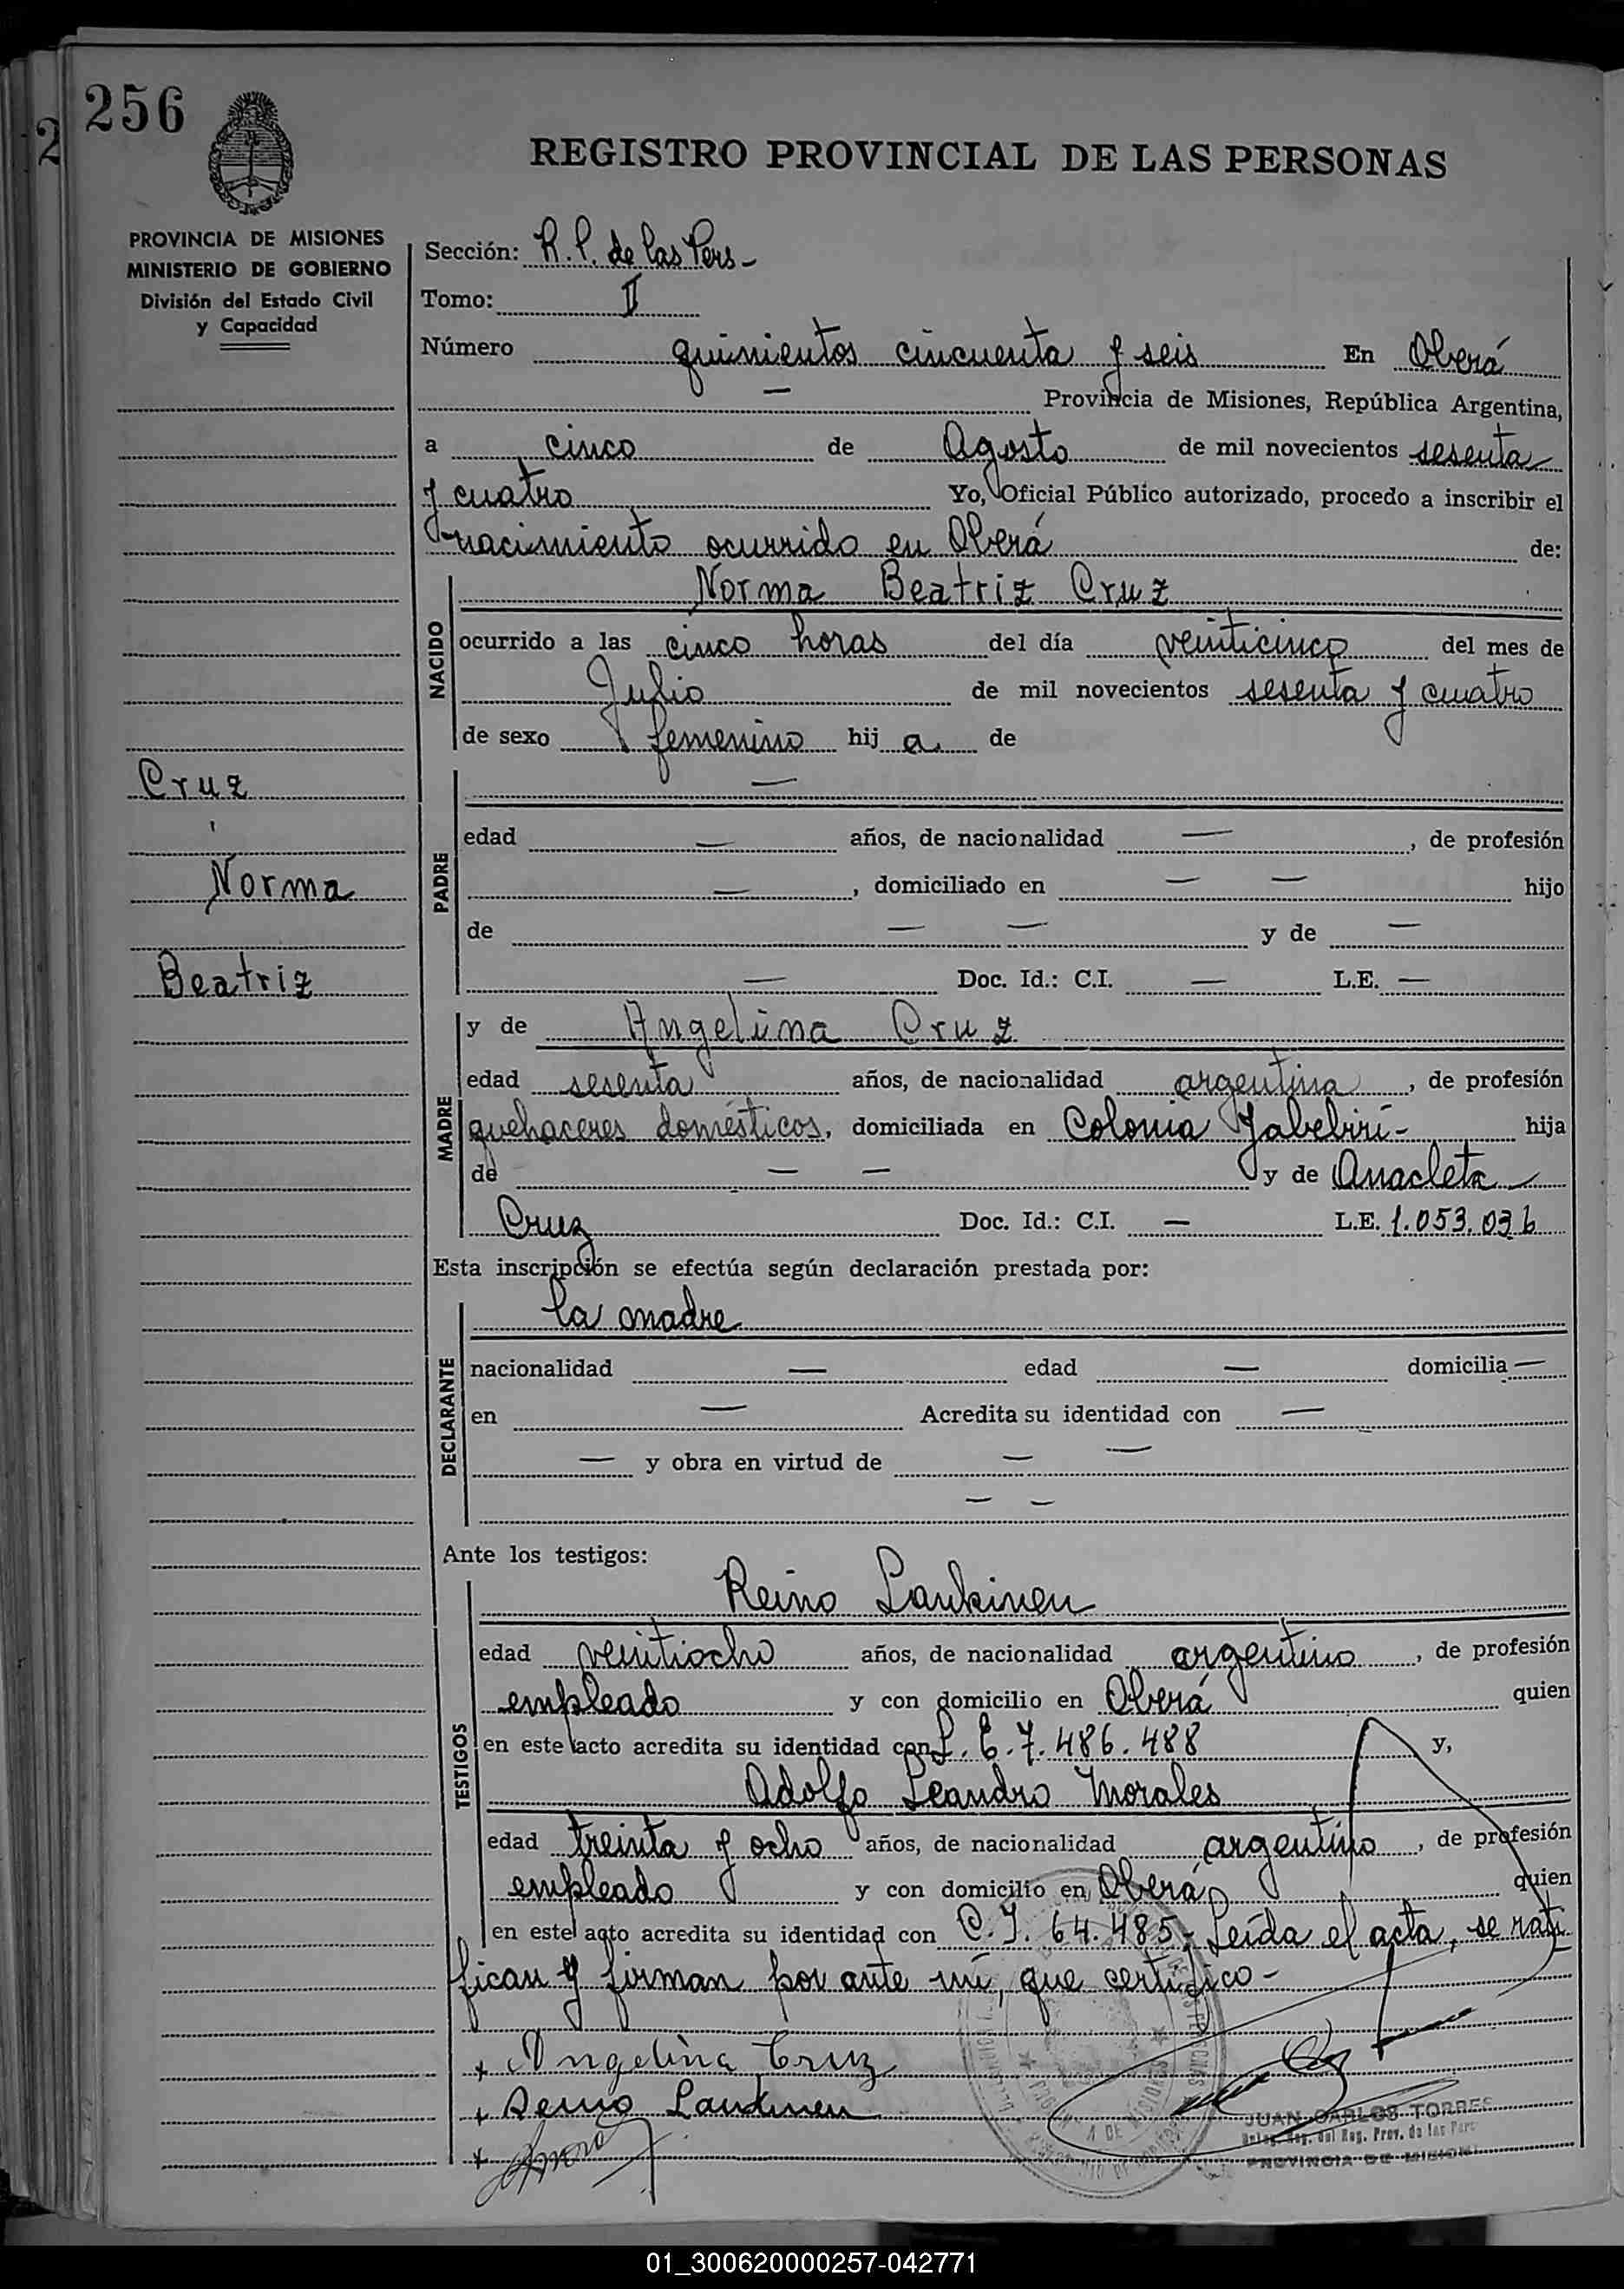 256
2
REGISTRO PROVINCIAL DE LAS PERSONAS
PROVINCIA DE MISIONES
MINISTERIO DE GOBIERNO
División del Estado Civil
y Capacidad
Sección: R.P. de las Pers-
Tomo: II
Número quinientos cincuenta y seis En Oberá
— Provincia de Misiones, República Argentina,
a cinco de Agosto de mil novecientos sesenta
y cuatro Yo, Oficial Público autorizado, procedo a inscribir el
nacimiento ocurrido en Oberá de:
NACIDO
Norma Beatriz Cruz
ocurrido a las cinco horas del día veinticinco del mes de
Julio de mil novecientos sesenta y cuatro
de sexo femenino hij a de
Cruz
Norma
Beatriz
PADRE
—
edad — años, de nacionalidad —, de profesión
—, domiciliado en — — hijo
de — — y de —
— Doc. Id.: C.I. — L.E. —
MADRE
y de Angelina Cruz
edad sesenta años, de nacionalidad argentina, de profesión
quehaceres domésticos, domiciliada en Colonia Yabebirí- hija
de — — y de Anacleta
Cruz Doc. Id.: C.I. — L.E. 1.053.036
Esta inscripción se efectúa según declaración prestada por:
DECLARANTE
la madre
nacionalidad — edad — domicilia —
en — Acredita su identidad con —
— y obra en virtud de — —
— —
Ante los testigos:
TESTIGOS
Reino Laukinen
edad veintiocho años, de nacionalidad argentino, de profesión
empleado y con domicilio en Oberá quien
en este acto acredita su identidad con L.E. 7.486.488 y,
Adolfo Leandro Morales
edad treinta y ocho años, de nacionalidad argentino, de profesión
empleado y con domicilio en Oberá quien
en este acto acredita su identidad con C.I. 64.485,- Leída el acta, se rati
fican y firman por ante mí, que certifico-
+ Angelina Cruz
+ Reino Laukinen
+
JUAN CARLOS TORRES
Reg. del Reg. Prov. de las Pers
PROVINCIA DE MISIONES
01_300620000257-042771